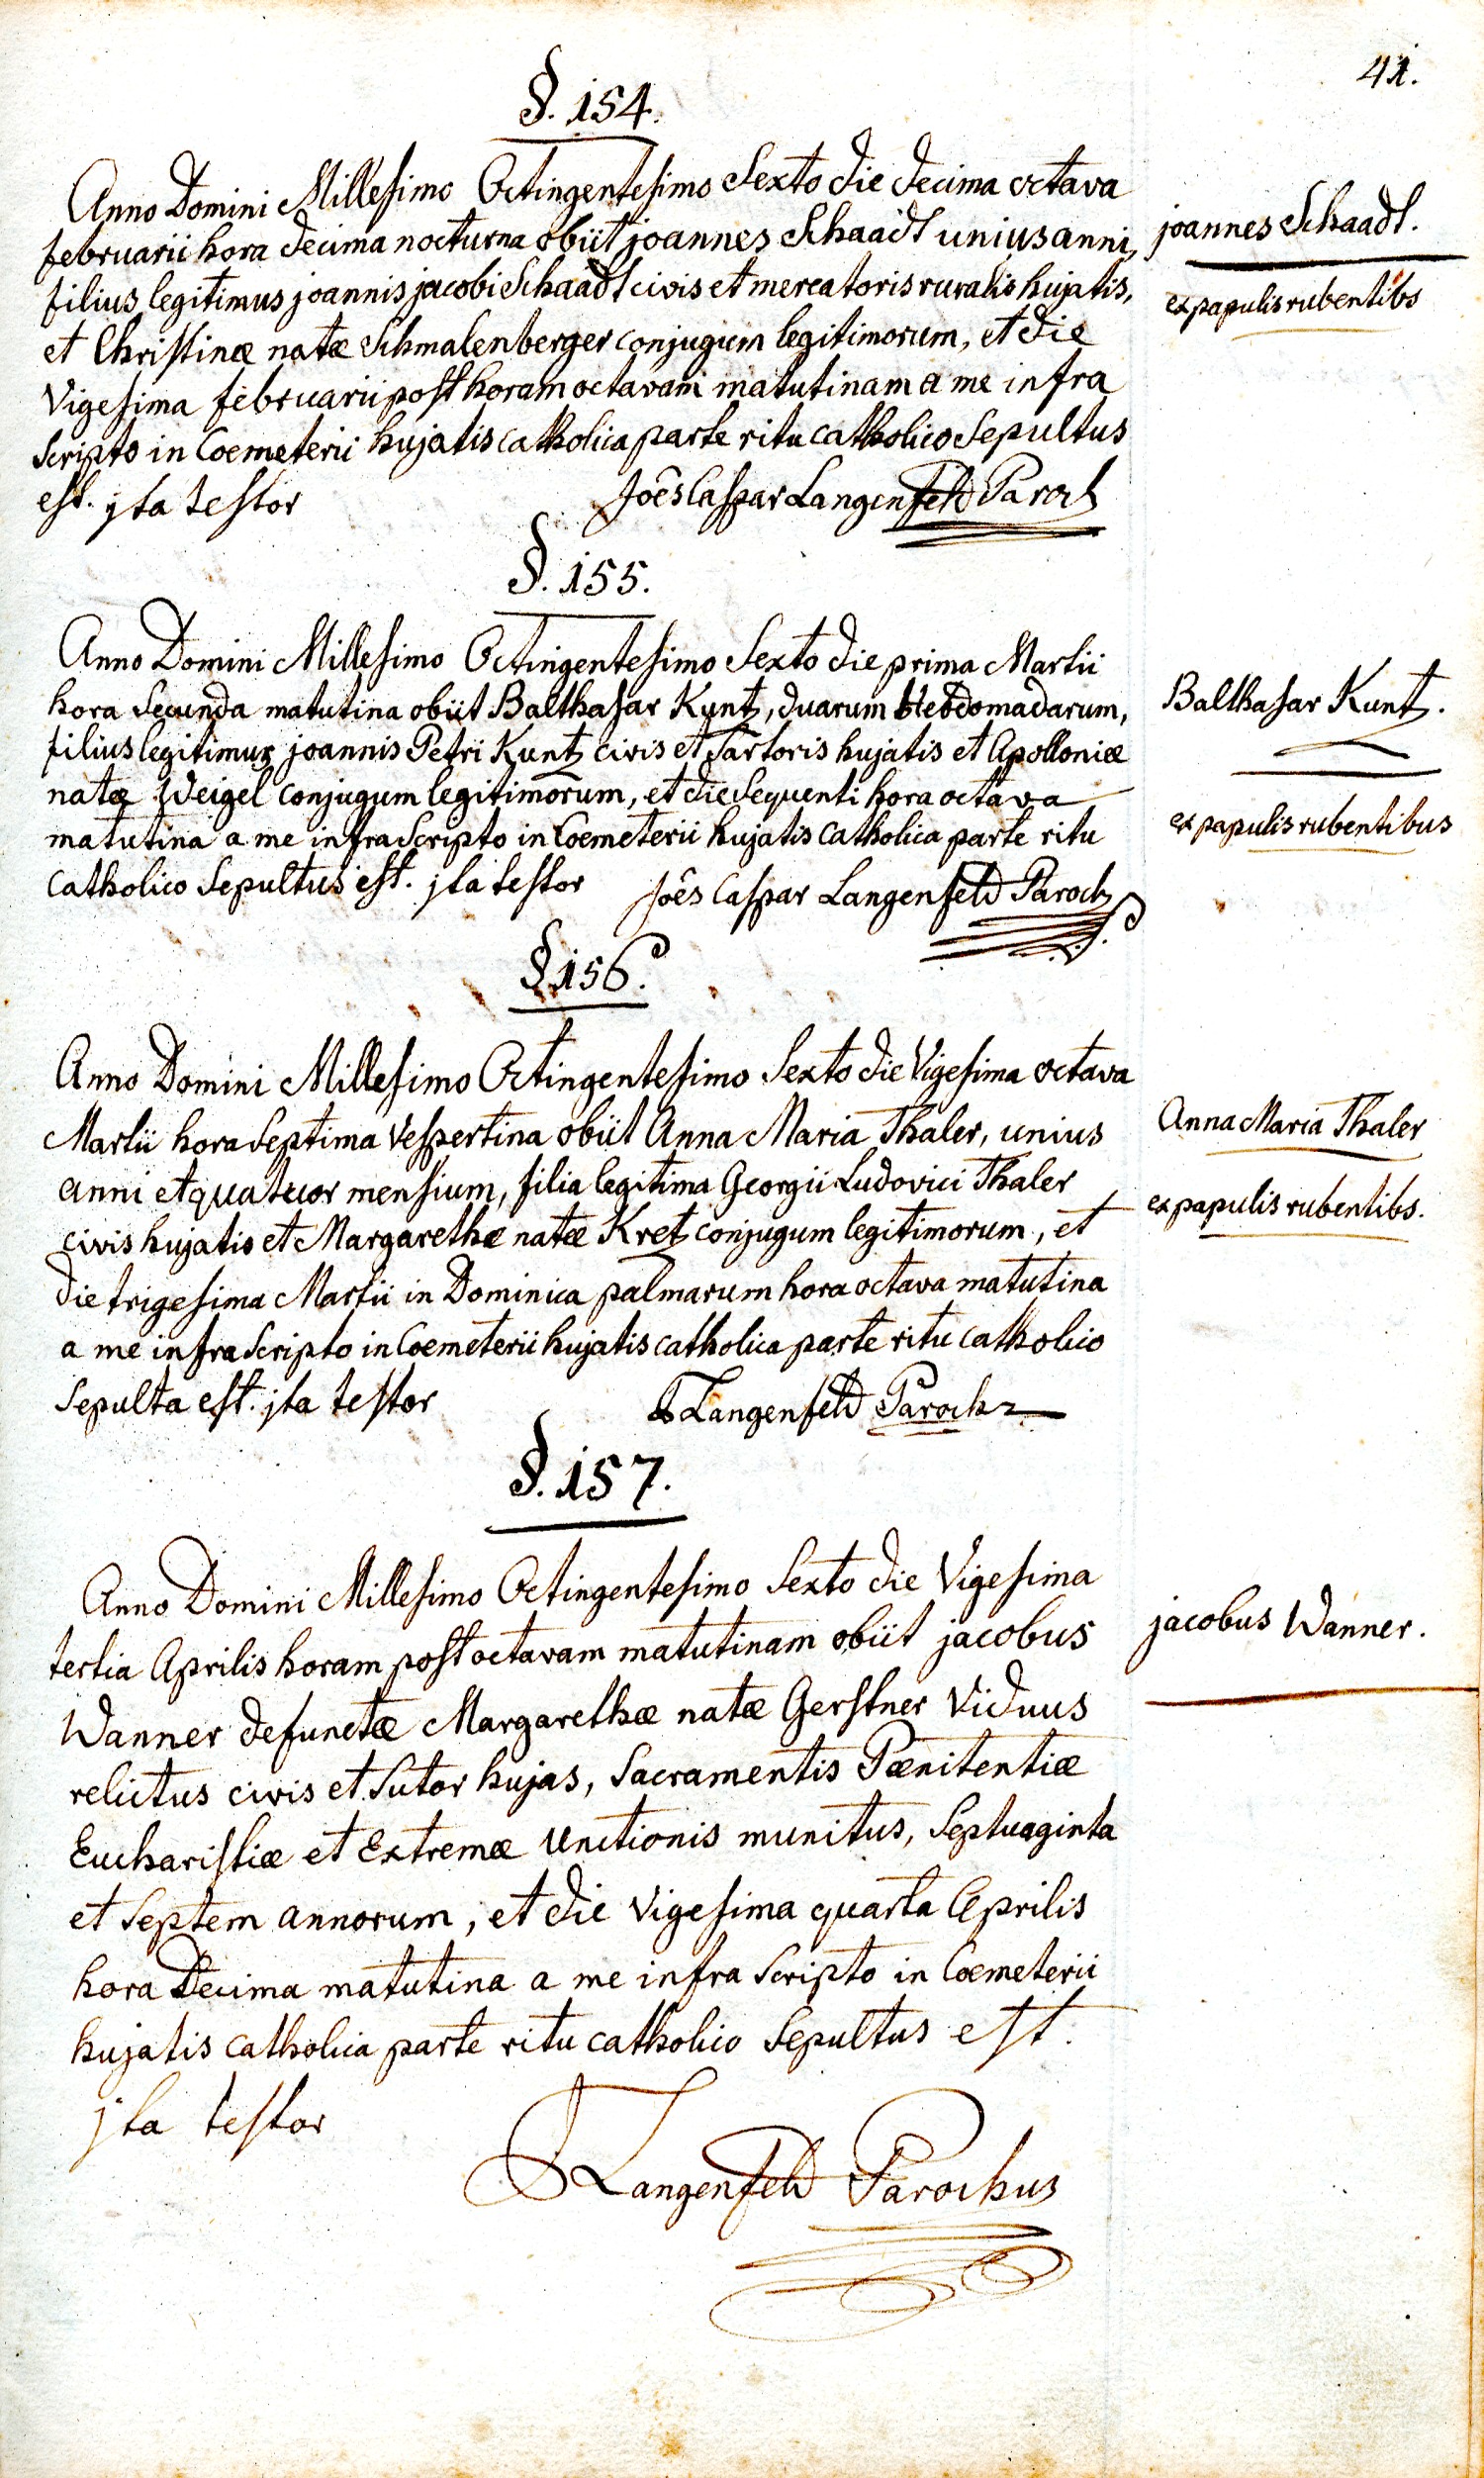 41.
§. 154.
Anno Domini Millesimo Octingentesimo Sexto die decima octava
februarii hora decima nocturna obiit joannes Schaadt unius anni,
filius legitimus joannis jacobi Schaadt civis et mercatoris ruralis hujatis,
et Christinæ natæ Schmalenberger conjugum legitimorum, et die
Vigesima februarii post horam octavam matutinam a me infra
scripto in Coemeterii hujatis catholica parte ritu catholico Sepultus
est. jta testor Joês Caspar Langenfeld Paroch
joannes Schaadt.
ex papulis rubentibs
§. 155.
Anno Domini Millesimo Octingentesimo Sexto die prima Martii
hora Secunda matutina obiit Balthasar Kuntz, duarum Hebdomadarum,
filius legitimus joannis Petri Kuntz civis et Sartoris hujatis et Apolloniæ
natæ Weigel conjugum legitimorum, et die Sequenti hora octava
matutina a me infra Scripto in Coemeterii hujatis catholica parte ritu
catholico Sepultus est. jta testor Joês Caspar Langenfeld Paroch
Balthasar Kuntz.
ex papulis rubentibus
§ 156.
Anno Domini Millesimo Octingentesimo Sexto die Vigesima octava
Martii hora Septima Vespertina obiit Anna Maria Thaler, unius
anni et quatuor mensium, filia legitima Georgii Ludovici Thaler
civis hujatis et Margarethæ natæ Kretz conjugum legitimorum, et
die trigesima Martii in Dominica palmarum hora octava matutina
a me infra Scripto in Coemeterii hujatis catholica parte ritu catholico
Sepulta est. jta testor Langenfeld Paroch
Anna Maria Thaler
ex papulis rubentibs.
§. 157.
Anno Domini Millesimo Octingentesimo Sexto die Vigesima
tertia Aprilis horam post octavam matutinam obiit jacobus
Wanner defunctæ Margarethæ natæ Gerstner Viduus
relictus civis et Sutor hujas, Sacramentis Pœnitentiæ
Eucharistiæ et Extremæ Unctionis munitus, Septuaginta
et Septem annorum, et die Vigesima quarta Aprilis
hora Decima matutina a me infra Scripto in Coemeterii
hujatis catholica parte ritu catholico Sepultus est.
jta testor
Langenfeld Parochus
jacobus Wanner.